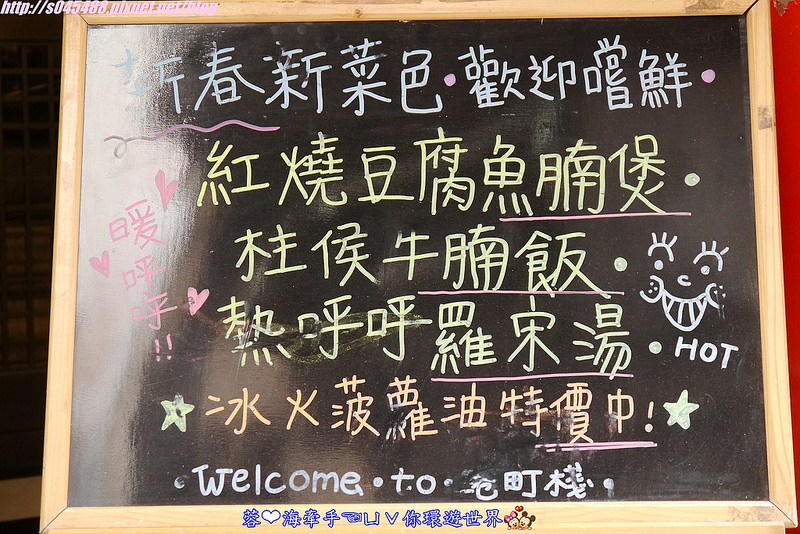 http://s045488.pixnet.net/blog
新春新菜色·歡迎嚐鮮·
紅燒豆腐魚腩煲·
柱侯牛腩飯·
熱呼呼羅宋湯·
暖呼呼!!
HOT
冰火菠蘿油特價中!
·Welcome·to·七町棧·
蓉❤海牽手☜ㄩㄥ你環遊世界